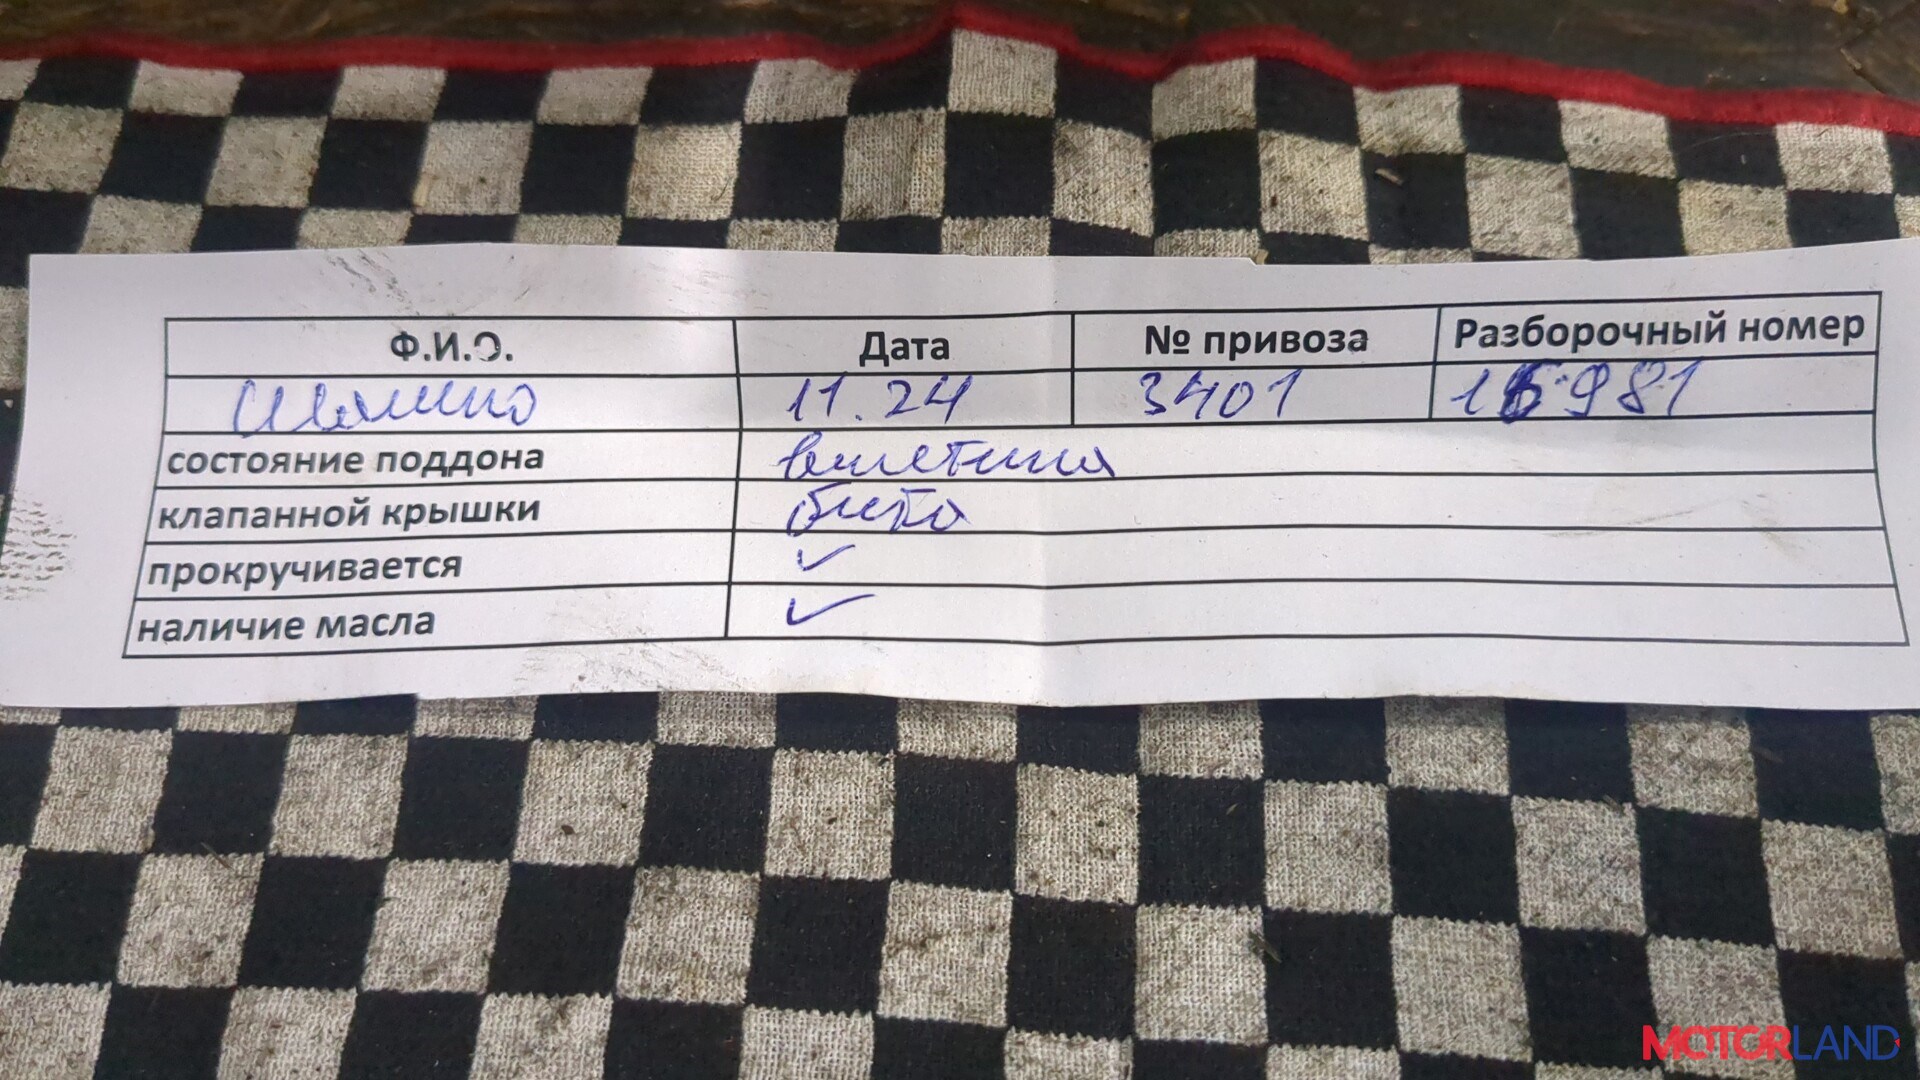 Ф.И.О. Дата № привоза Разборочный номер
11.24 3401 16981
состояние поддона вмятина
клапанной крышки бита
прокручивается ✓
наличие масла ✓
MOTORLAND